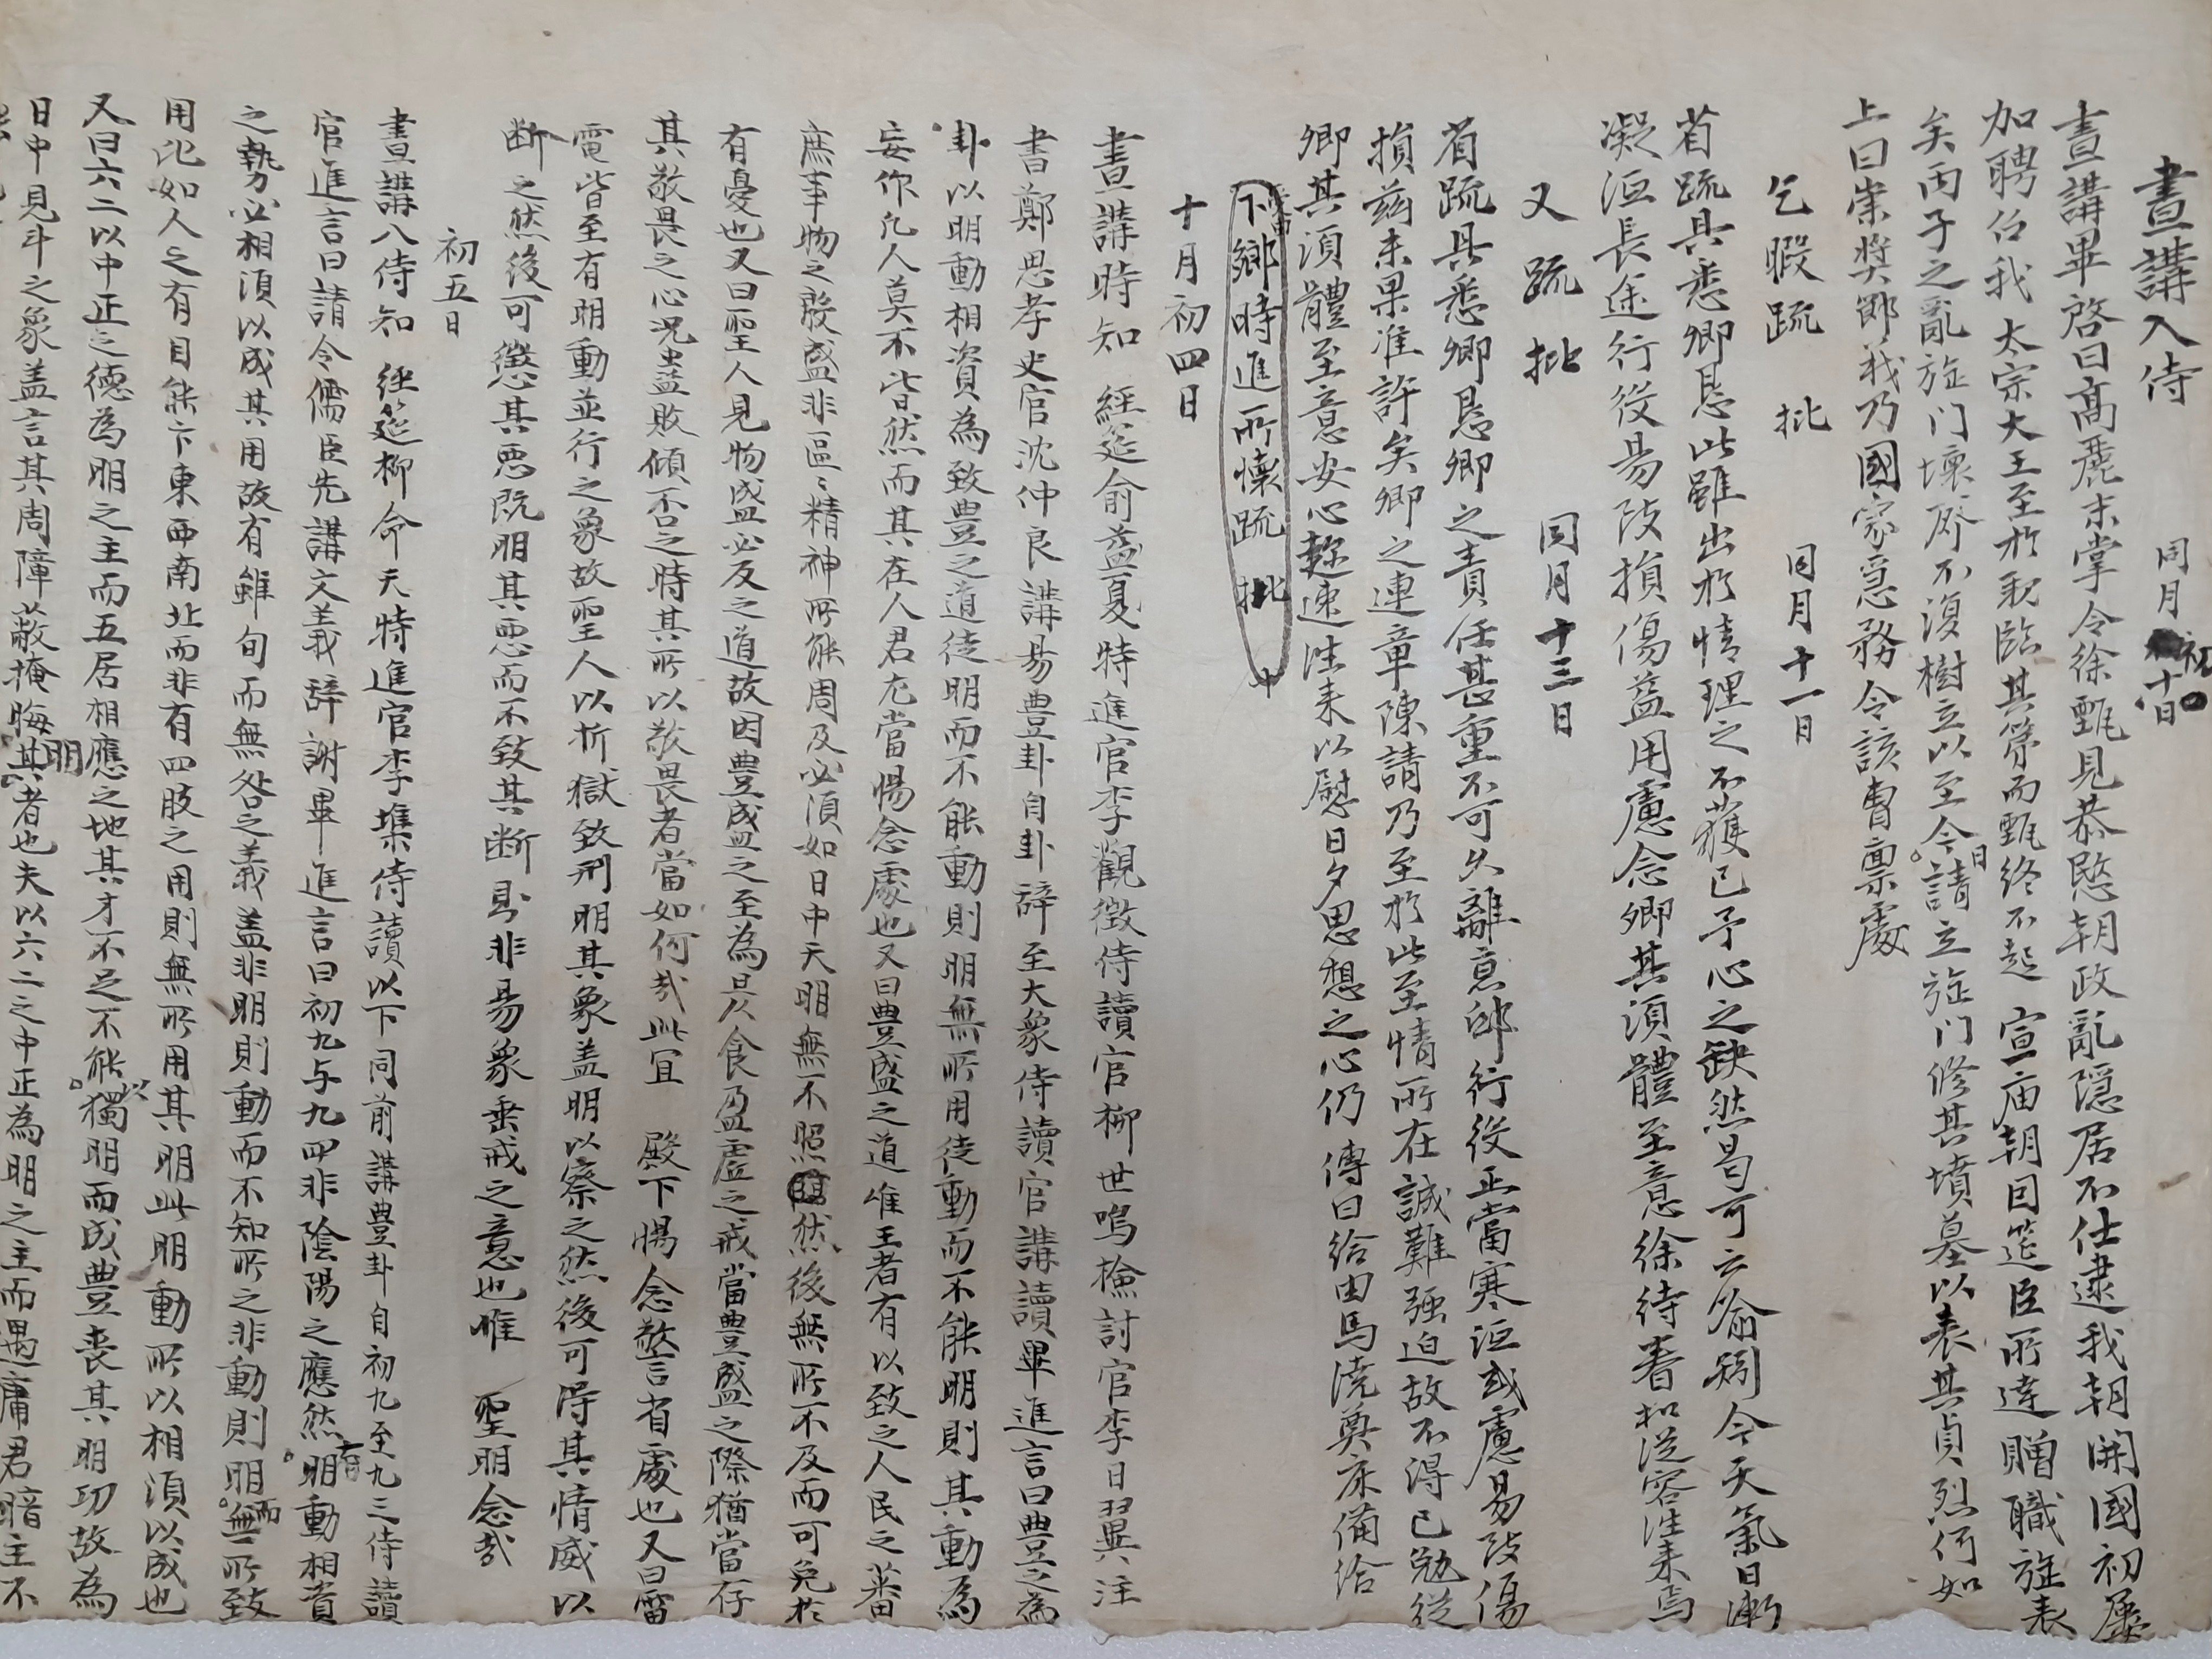 晝講入侍 同月初十日
晝講畢啓曰高麗末掌令徐甄見恭愍朝政亂隱居不仕逮我朝開國初屢
加聘召我 太宗大王至於親臨其第而甄終不起 宣庙朝因筵臣所達贈職旌表
矣丙子之亂旌门壞廢不復樹立以至今日請立旌门修其墳墓以表其貞烈何如
上曰崇奬節義乃國家急務令該曹稟處
乞暇疏 批 同月十一日
省疏具悉卿懇此雖出於情理之不獲已予心之缺然曷可云喻矧今天氣日漸
凝沍長途行役易致損傷益用慮念卿其須體至意徐待春和從容往来焉
又疏批 同月十三日
省疏具悉卿懇卿之責任甚重不可久離意郷行役正當寒沍或慮易致傷
損玆未果准許矣卿之連章陳請乃至於此至情所在誠難强迫故不得已勉從
卿其須體至意安心趂速往来以慰日夕思想之心仍 傳曰給由馬澆奠床備給
下鄉時進所懷疏 批
十月初四日
晝講時知 經筵俞益夏特進官李觀徵侍讀官柳世鳴檢討官李日翼注
書鄭思孝史官沈仲良講易豊卦自卦辭至大象侍讀官講讀畢進言曰豊之為
卦以明動相資為致豊之道徒明而不能動則明無所用徒動而不能明則其動為
妄作凡人莫不皆然而其在人君尤當惕念處也又曰豊盛之道唯王者有以致之人民之蕃
庶事物之殷盛非區〻精神所能周及必須如日中天明無不照然後無所不及而可免於
有憂也又曰聖人見物盛必反之道故因豊盛之至為日昃食乃盈虛之戒當豊盛之際猶當存
其敬畏之心况蠱敗傾否之時其所以敬畏者當如何哉此宜 殿下惕念警省處也又曰雷
電皆至有明動並行之象故聖人以折獄致刑明其象盖明以察之然後可得其情威以
断之然後可懲其悪既明其悪而不致其断則非易象垂戒之意也惟 聖明念哉
初五日
晝講入侍知 經筵柳命天特進官李㙫侍讀以下同前講豊卦自初九至九三侍讀
官進言曰請令儒臣先講文義辞謝畢進言曰初九与九四非陰陽之應然有明動相資
之勢必相須以成其用故有雖旬而無咎之義盖非明則動而不知所之非動則明而無所致
用比如人之有目能卞東西南北而非有四肢之用則無所用其明此明動所以相須以成也
又曰六二以中正之德為明之主而五居相應之地其才不足不能以獨明而成豊丧其明功故為
日中見斗之象盖言其周障蔽掩晦其明者也夫以六二之中正為明之主而遇庸君暗主不